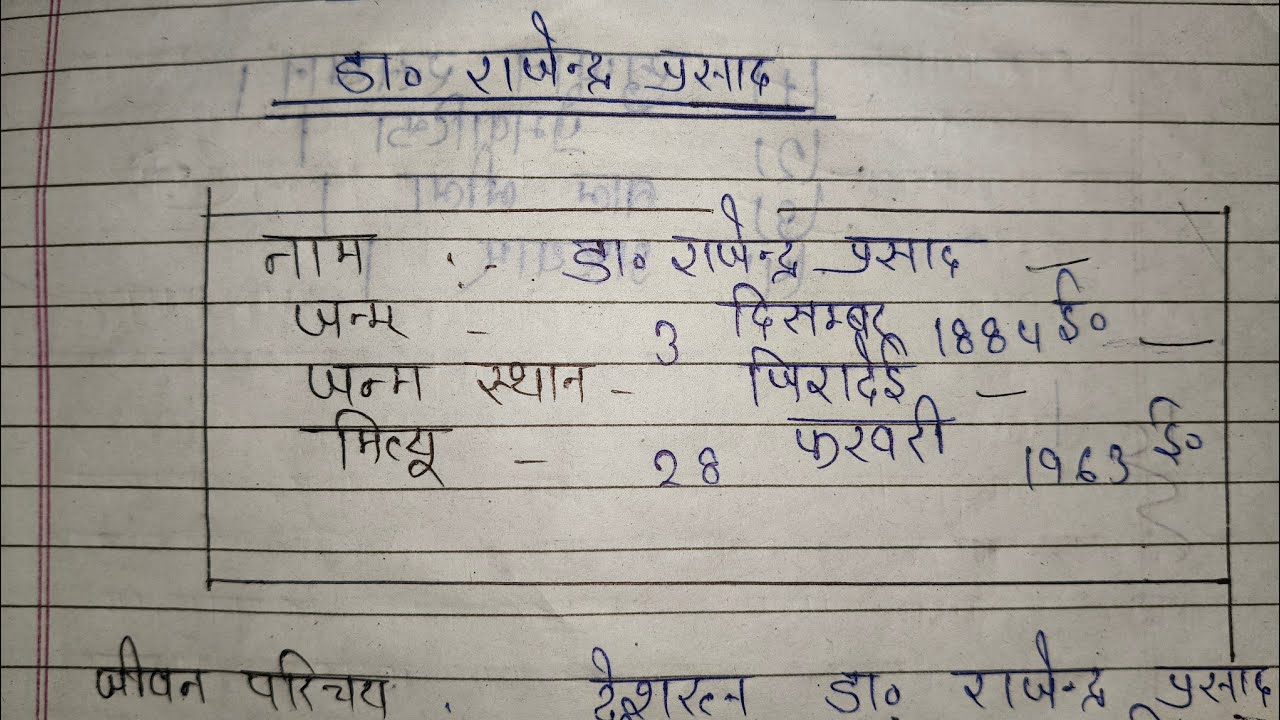 डा० राजेन्द्र प्रसाद
नाम :- डा० राजेन्द्र प्रसाद —
जन्म - 3 दिसम्बर 1884 ई० —
जन्म स्थान - जिरादेई —
मित्यू - 28 फरवरी 1963 ई०
जीवन परिचय . देशरत्न डा० राजेन्द्र प्रसाद